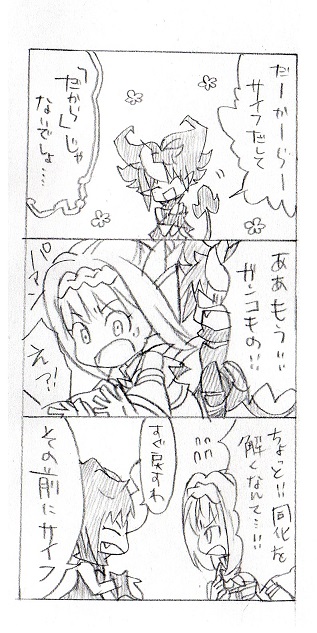 だーかーらー
サイフだして
「だから」じゃ
ないでしょ…
ああもう!!
ガンコもの!!
パマン
えっ?!
ちょっと!!同化を
解くなんて…!!
すぐ戻すわ
その前にサイフ